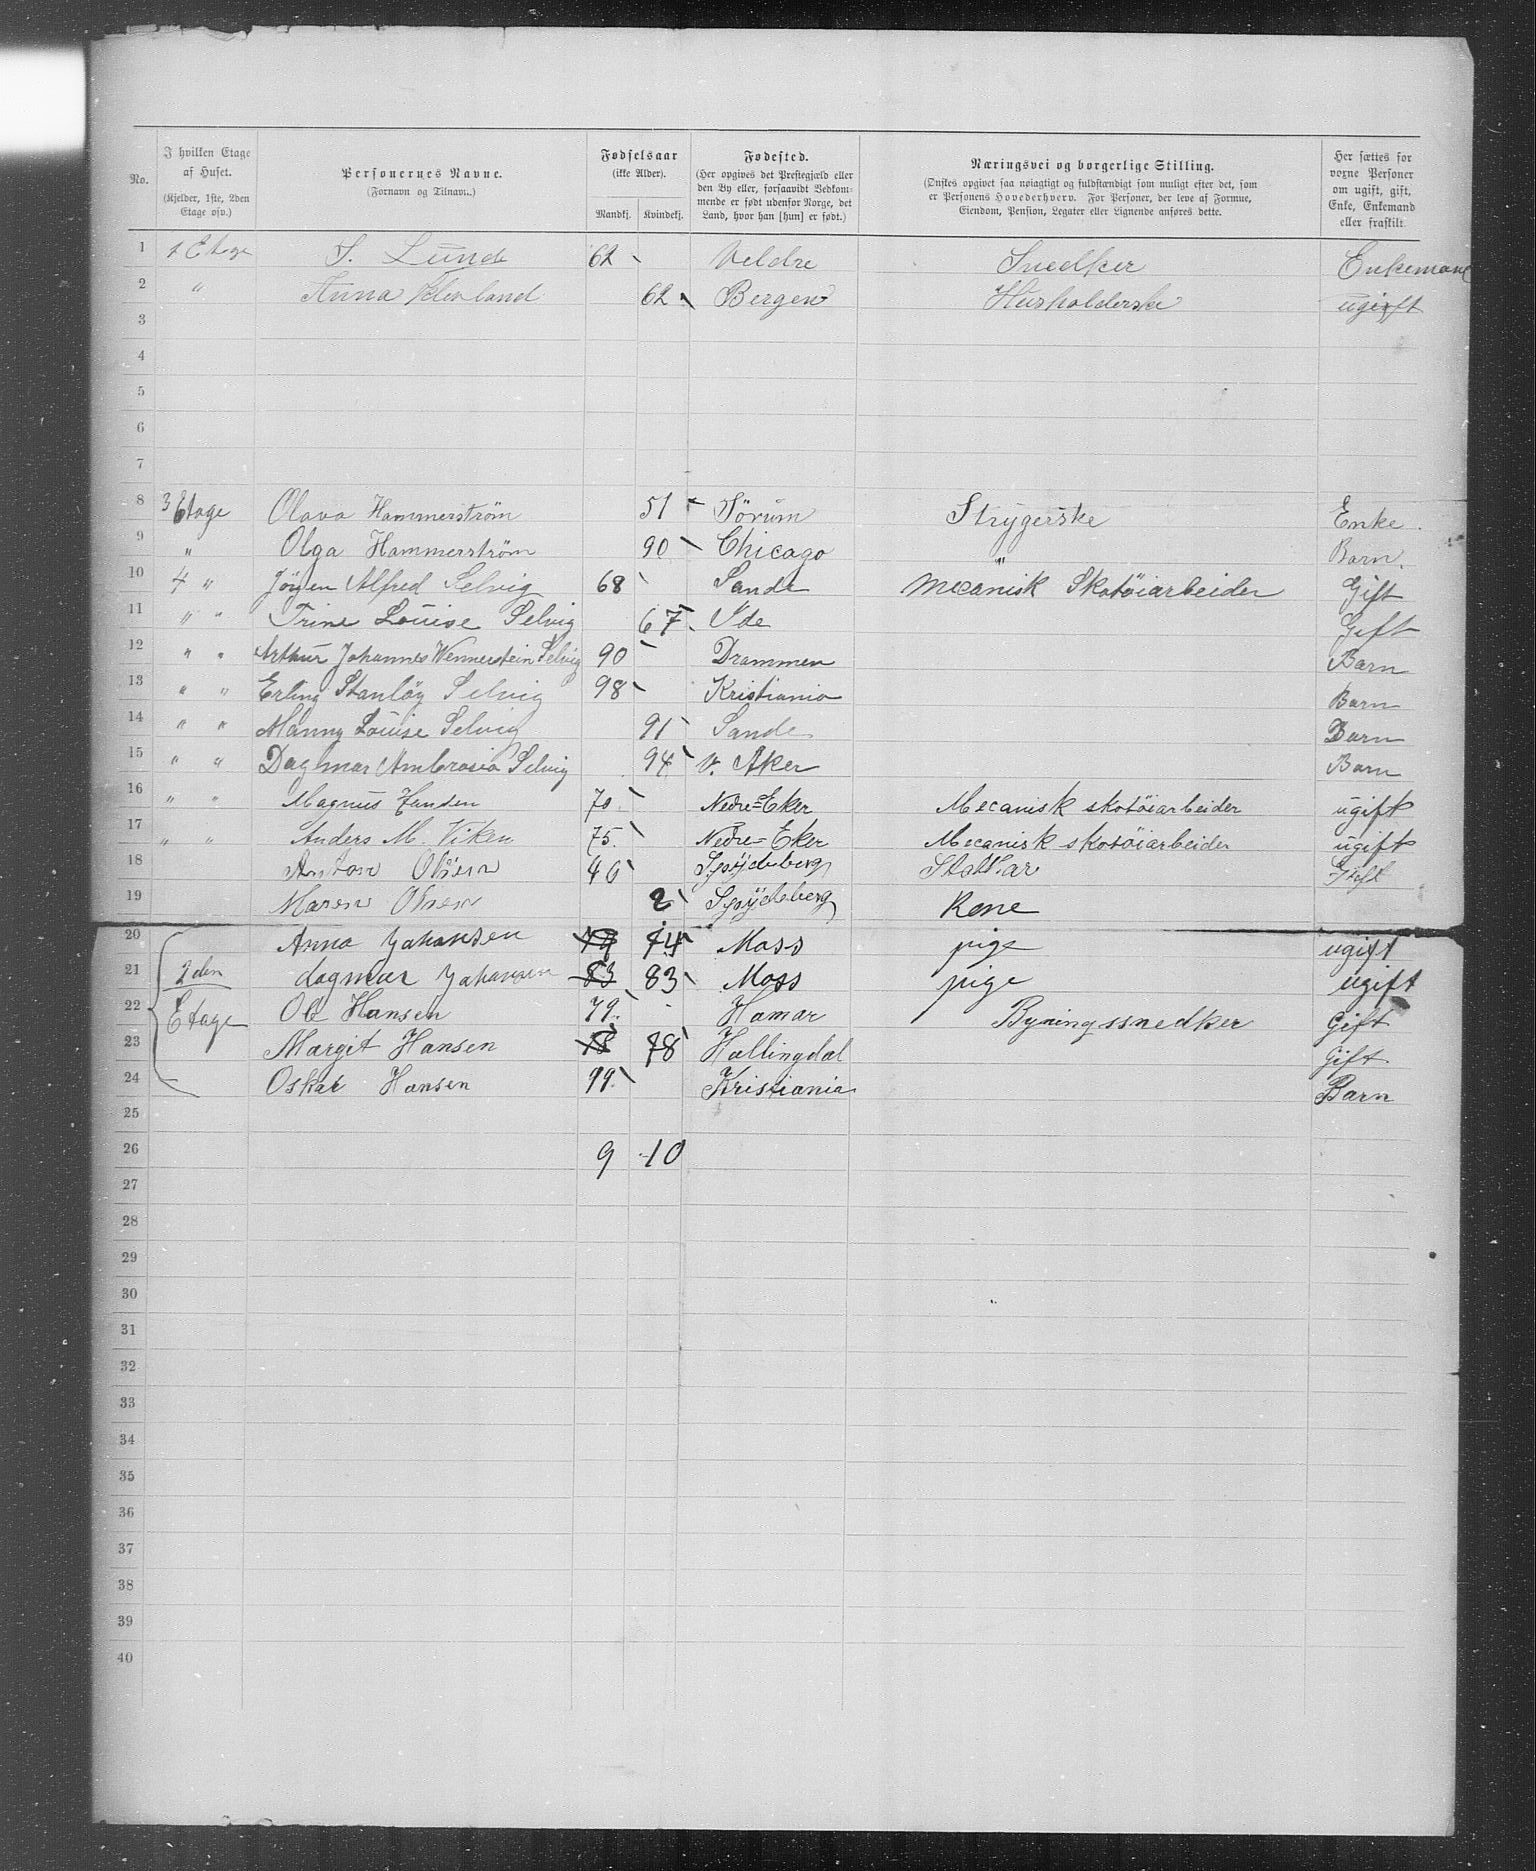 No. | I hvilken Etage af Huset. (Kjelder, 1ste, 2den Etage osv.) | Personernes Navne. (Fornavn og Tilnavn.) | Fødselsaar (ikke Alder). Mandkj. | Kvindekj. | Fødested. (Her opgives det Prestegjæld eller den By eller, forsaavidt Vedkommende er født udenfor Norge, det Land, hvor han [hun] er født.) | Næringsvei og borgerlige Stilling. (Ønskes opgivet saa nøiagtigt og fuldstændigt som muligt efter det, som er Personens Hovederhverv. For Personer, der leve af Formue, Eiendom, Pension, Legater eller Lignende anføres dette.) | Her sættes for voxne Personer om ugift, gift, Enke, Enkemand eller fraskilt.
1 1 Etage S. Lunde 62 Veldre Snedker Enkemand
2 " Anna Klevland 62 Bergen Husholderske ugift
3
4
5
6
7
8 3 Etage Olava Hammerström 51 Sörum Strygerske Enke
9 " Olga Hammerström 90 Chicago " Barn.
10 4 " Jörgen Alfred Selvig 68 Sande Mecanisk Skotöiarbeider Gift
11 " " Trine Louise Selvig 67 Ide Gift
12 " " Arthur Johannes Wennerstein Selvig 90 Drammen Barn
13 " " Erling Stanløy Selvig 98 Kristiania Barn
14 " " Manny Louise Selvig 91 Sande Barn
15 " " Dagmar Ambrosia Selvig 94 V. Aker Barn
16 " " Magnus 70 Nedre=Eker Mecanisk skotöiarbeider ugift
17 " " Anders M. Viken 75. Nedre=Eker Mecanisk skotöiarbeider ugift
18 Anton Olsen 46 Spydeberg Gift
19 Maren Olsen 2 Spydeberg Kone
20 Anna Johansen 74 74 Moss pige ugift
21 2den dagmar Johansen 83 83 Moss pige ugift
22 Etage Ole Hansen 79. Hamar Byningssnedker Gift
23 Margit Hansen 78 78 Hallingdal Gift
24 Oskar Hansen 99. Kristiania Barn
25
26 9 10
27
28
29
30
31
32
33
34
35
36
37
38
39
40